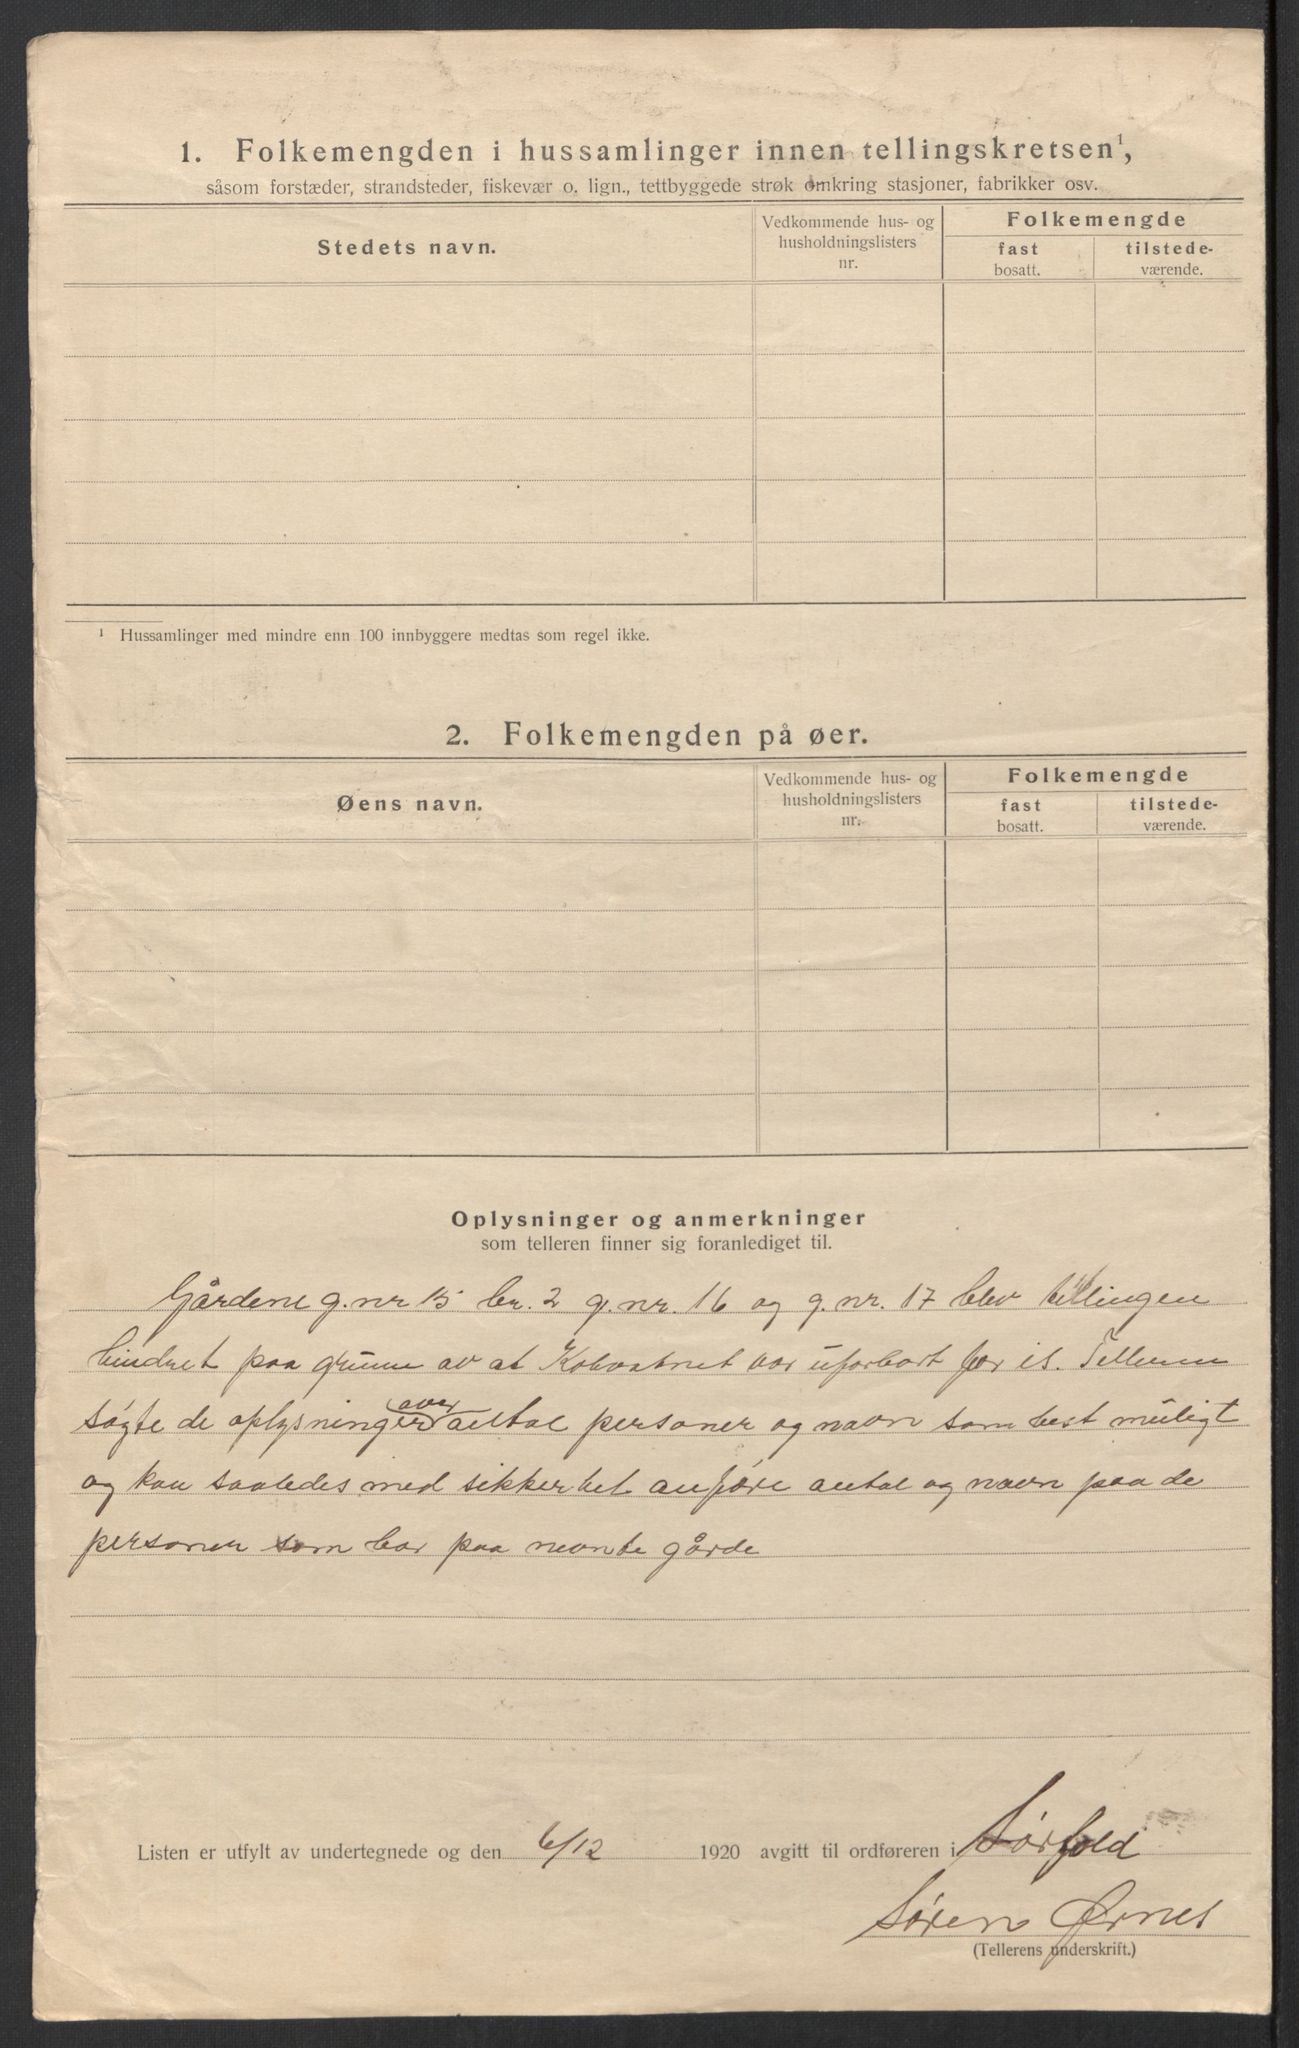 1. Folkemengden i hussamlinger innen tellingskretsen¹,
såsom forstæder, strandsteder, fiskevær o. lign., tettbyggede strøk omkring stasjoner, fabrikker osv.
Stedets navn.
Vedkommende hus- og
husholdningslisters
nr.
Folkemengde
fast
bosatt.
tilstede-
værende.
¹ Hussamlinger med mindre enn 100 innbyggere medtas som regel ikke.
2. Folkemengden på øer.
Øens navn.
Vedkommende hus- og
husholdningslisters
nr.
Folkemengde
fast
bosatt.
tilstede-
værende.
Oplysninger og anmerkninger
som telleren finner sig foranlediget til.
Gårdene g.nr 15 br. 2 g.nr. 16 og g.nr. 17 blev tellingen
hindret paa grunn av at Kobvatnet var uforbart for is. Telleren
over
søgte de oplysninger antal personer og navn som best muligt
og kan saaledes med sikkerhet anføre antal og navn paa de
personer som bor paa nevnte gårde
Listen er utfylt av undertegnede og den 6/12 1920 avgitt til ordføreren i Sørfold
Søren Ørnes
(Tellerens underskrift.)